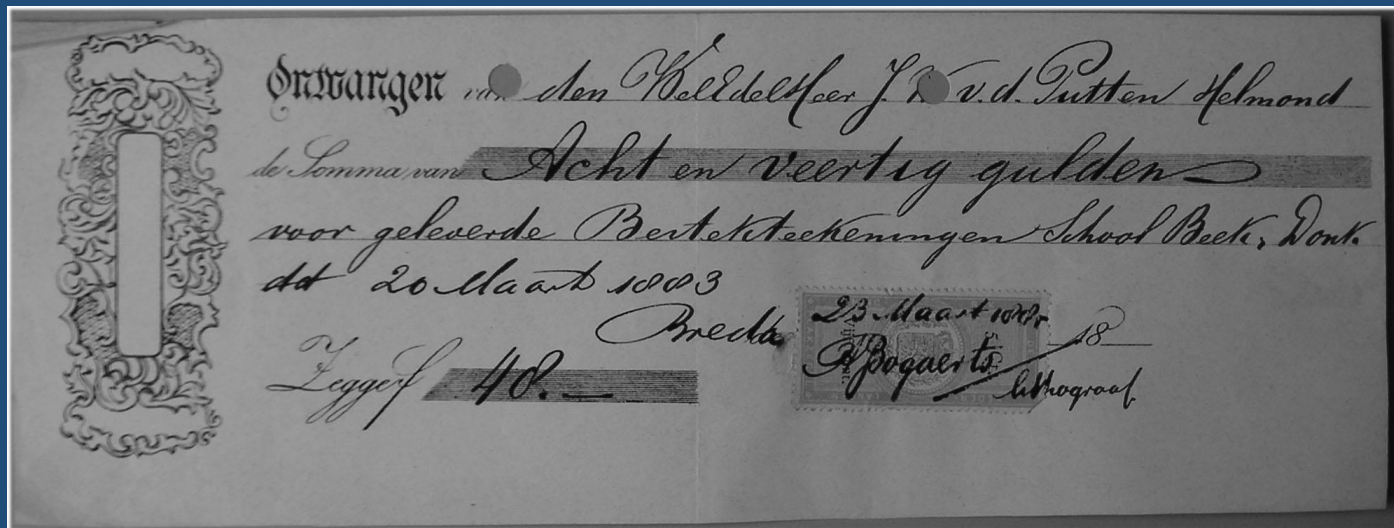 Ontvangen van den WelEdelHeer J. v.d. Putten Helmond
de Somma van Acht en veertig gulden
voor geleverde Bestekteekeningen School Beek, Donk
dd 20 Maart 1883
Breda 23 Maart 18
Zegge f 48.—
Bogaerts
lithograaf